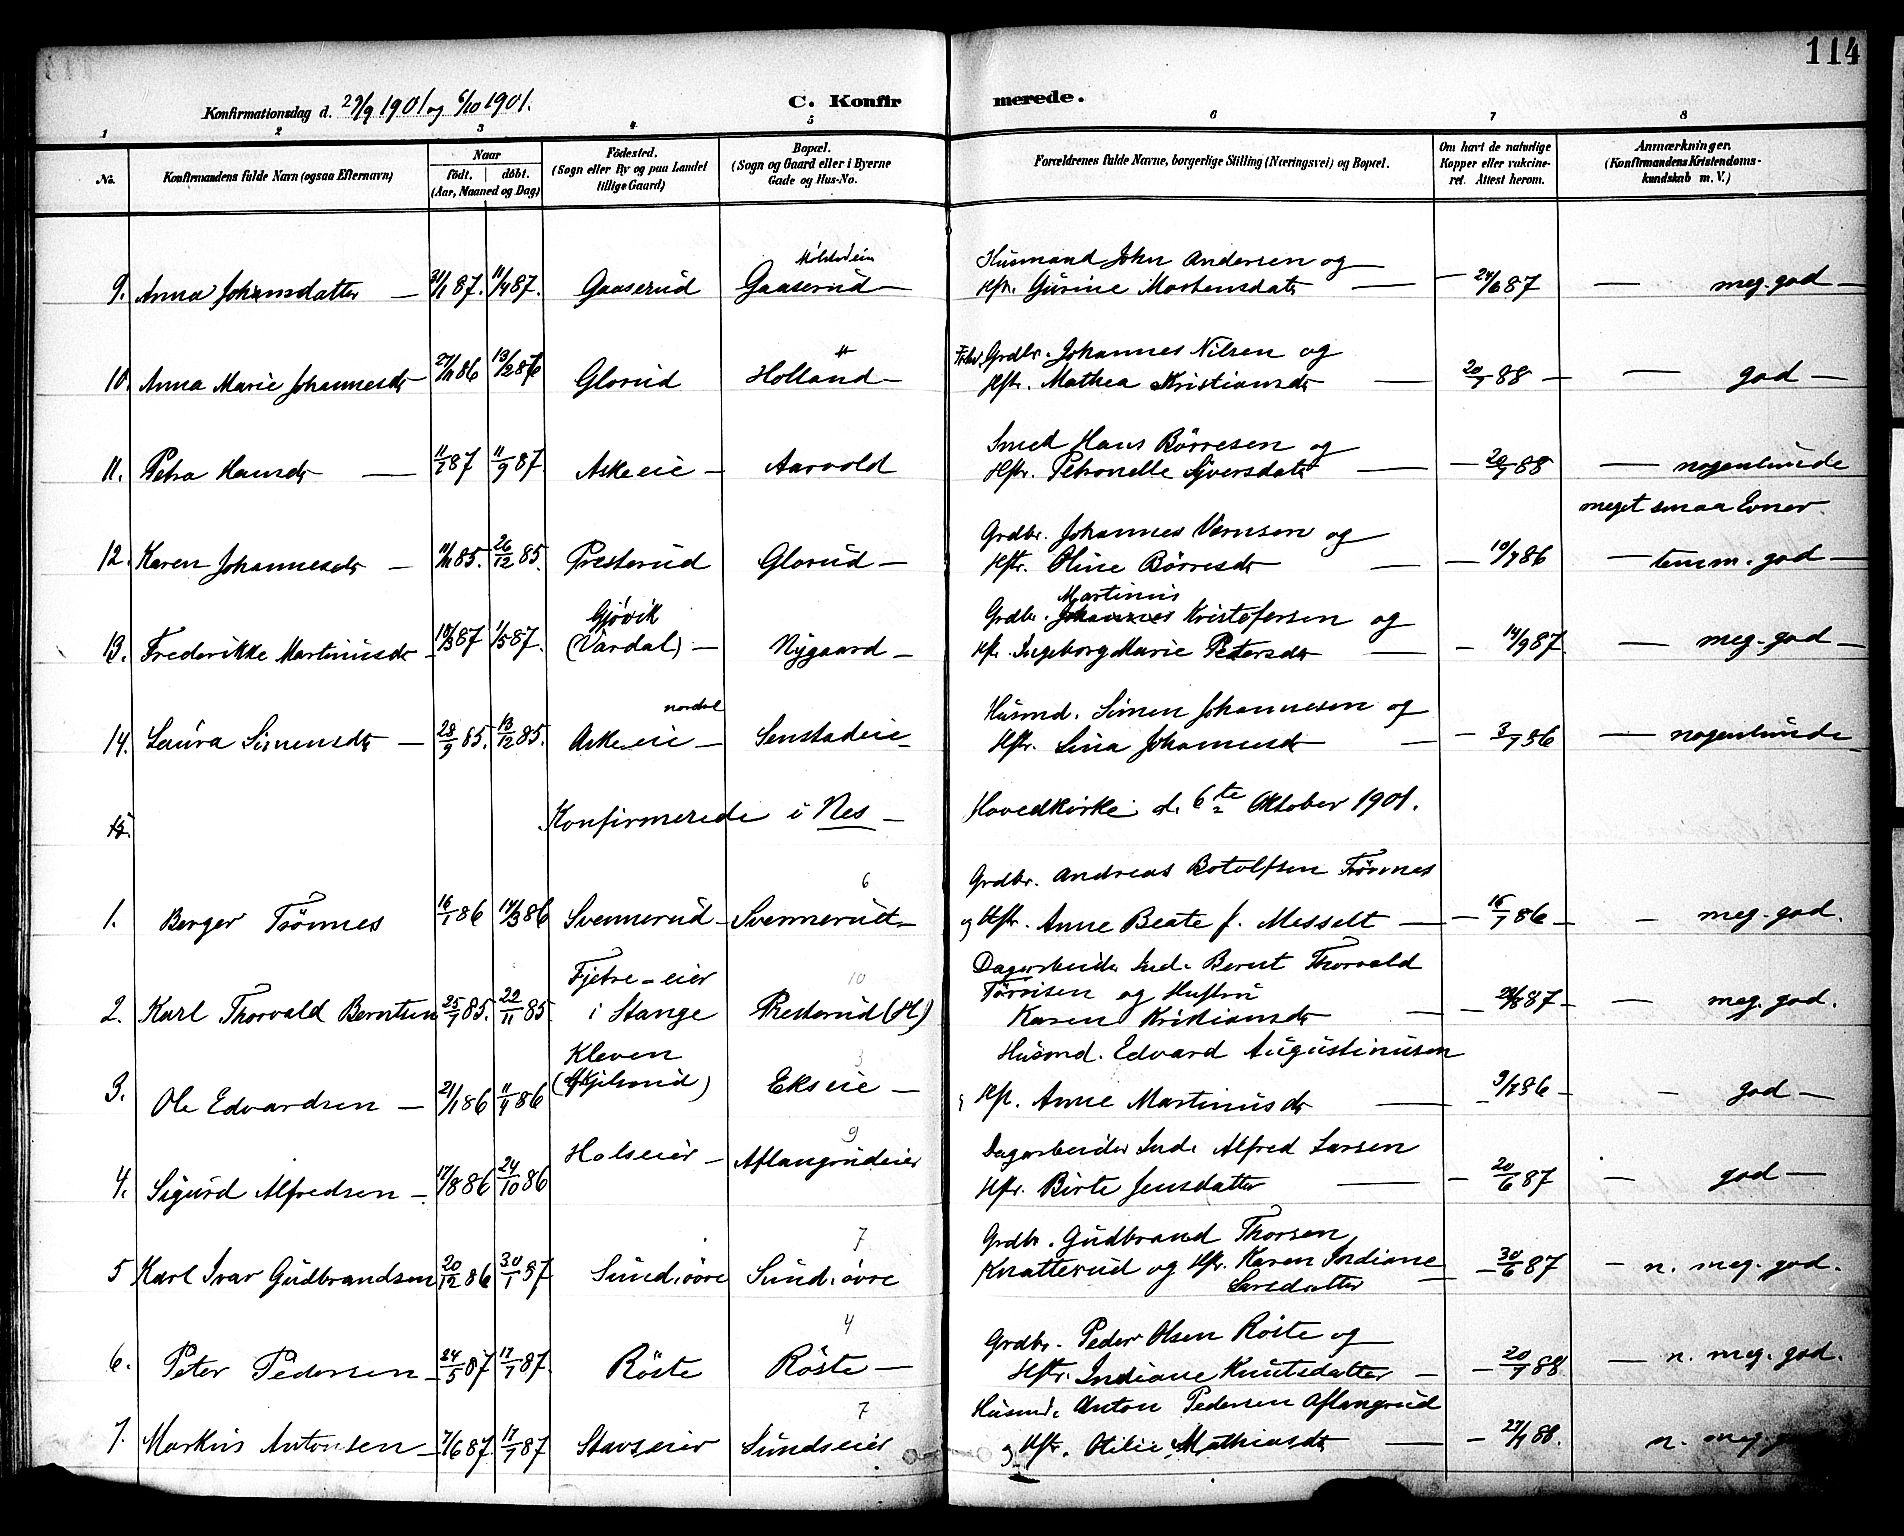 114
Konfirmationsdag d. 29/9 1901 og 6/10 1901.
C. Konfirmerede.
1 2 3 4 5 6 7 8
No. Konfirmandens fulde Navn (ogsaa Efternavn) Naar födt. döbt. (Aar, Maaned og Dag) Födested. (Sogn eller By og paa Landet tillige Gaard) Bopæl. (Sogn og Gaard eller i Byerne Gade og Hus-No. Forældrenes fulde Navne, borgerlige Stilling (Næringsvei) og Bopæl. Om havt de naturlige Kopper eller vakcineret. Attest herom. Anmærkninger. (Konfirmandens Kristendomskundskab m. V.)
Husmand John Andersen og
9. Anna Johansdatter — 11/4 87. Gaaserud Gaaserud — Hfr. Gurine Mortensdatr — 24/6 87 — meg. god —
Grdbr. Johannes Nilsen og
10. Anna Marie Johannesdr 27/11 86 Glorud Holland — Hfr. Mathea Kristiansdr — 20/7 88 — god —
Smed Hans Börresen og
11. Petra Hansdr — 11/9 87 Aske eie — Aarvold Hfr. Petronelle Syversdatr — 20/7 88 — nogenlunde
meget smaa Evner.
Grdbr. Johannes og
12. Karen Johannesdr — 11/11 85. 26/12 85. Presterud Glorud — Hfr. Oline Börresdr — 10/7 86 — temm. god —
Martinus
Gjövik Grdbr. Johannes Kristofersen og
13. Frederikke Martinusdr 1/5 87. (Vardal) — Nygaard — Hfr. Ingeborg Marie Petersdr — 14/9 87. — meg. god —
nordre Husmd. Simen Johannesen og
14. Laura Simensdr — 28/9 85. 13/12 85. Aske eie — Senstadeie — Hfr. Lina Johannesdr — 3/7 86 — nogenlunde
15. Konfirmerede i Nes — Hovedkirke d. 6te Oktober 1901.
6 Grdbr. Andreas Botolfsen Trönnes
1. Berger Trönnes 16/1 86 14/3 86 Svennerud — Svennerud — og Hfr. Anne Beate f. Messelt — 15/7 86 — meg. god.
Fjetre-eier 10 Dagarbeider Ind. Bernt Thorvald
og Hustru
2. Karl Thorvald Berntsen 25/7 85. 22/11 85 i Stange Presterud (H) Karen Kristiansdr — 87 — meg. god.
Kleven 3 Husmd. Edvard Augustinusen
3. Ole Edvardsen — 21/1 86 11/4 86 Ekseie — Hfr. Anne Martinusdr — 9/7 86 — god —
9 Dagarbeider Ind. Alfred Larsen
4. Sigurd Alfredsen — 17/8 86 24/10 86 Holseier — Aflangrudeier Hfr. Birte Jensdatter — 20/6 87 — god —
7 Grdbr. Gudbrand Thorsen
5 Karl Ivar Gudbrandsen 20/12 86 30/1 87 Sund, övre Sund, övre Knatterud og Hfr. Karen Indiane Larsdatter — 30/6 87 — n. meg. god.
4 Grdbr. Peder Olsen Röste og
6. Peter Pedersen — 24/5 87 17/7 87. Röste Röste — Hfr. Indiane Knutsdatter — 20/7 88 — n. meg. god.
7 Husmd. Anton Pedersen Aflangrud
7. Markus Antonsen — 7/6 87. 17/7 87 Stavseier Sundseier og Hfr. Otilie Mathiasdr — 27/7 88. n. meg.